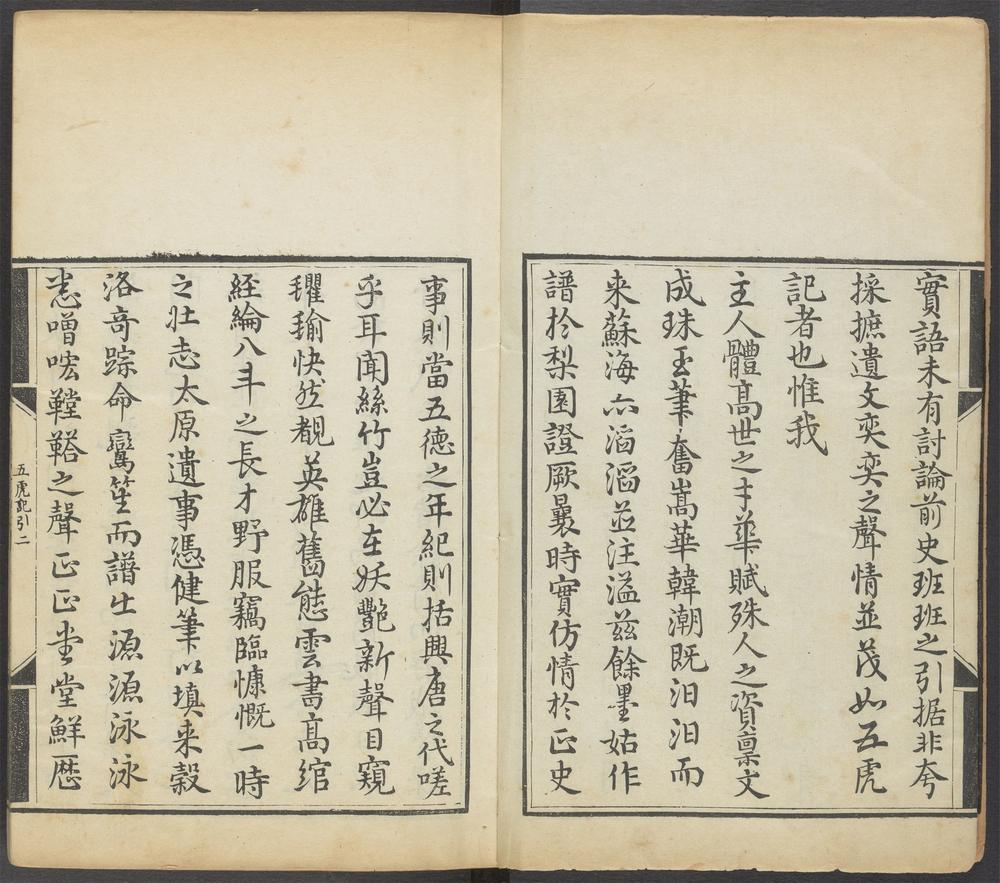 實語未有討論前史班班之引据非夸
採摭遺文奕奕之聲情並茂如五虎
記者也惟我
主人體高世之才華賦殊人之資稟文
成珠玉筆奮嵩華韓潮既汨汨而
来蘇海亦滔滔並注溢兹餘墨姑作
譜於梨園證厥曩時實仿情於正史
事則當五德之年紀則括興唐之代嗟
乎耳聞絲竹豈必在妖艷新聲目窺
瑜快然覩英雄舊態雲書高綰
經綸八斗之長才野服竊臨慷慨一時
之壯志太原遺事憑健筆以填来穀
洛奇踪命鸞笙而譜出源源泳泳
噌吰鞺鞳之聲正正堂堂鮮歷
五虎記引二